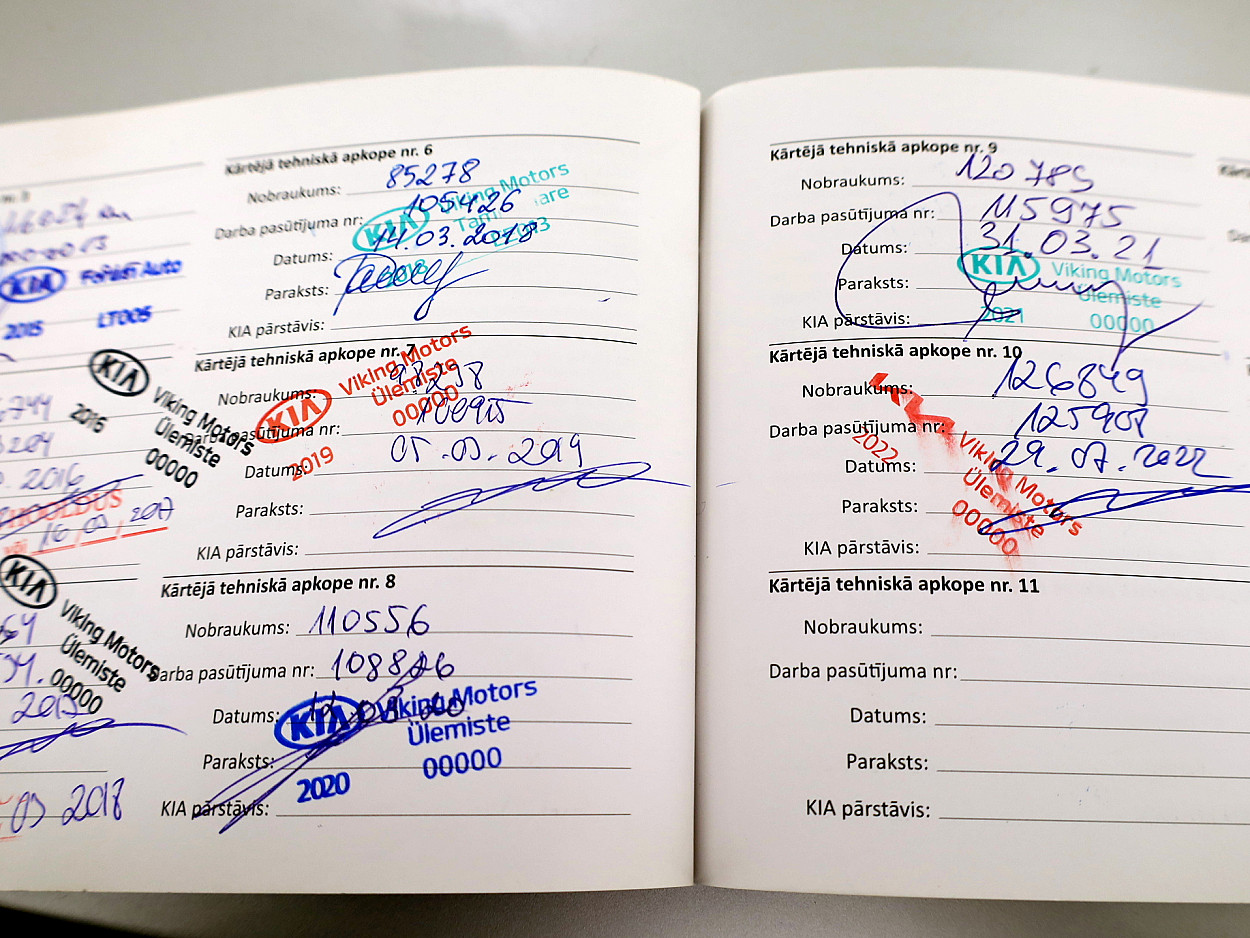 2015
LT005
KIA
Viking Motors
Ülemiste
00000
2016
2016
HOOLDUS
2017
KIA
Viking Motors
Ülemiste
00000
03 2018
Kārtējā tehniskā apkope nr. 6
Nobraukums: 85278
Darba pasūtījuma nr: 105426
Datums: 14.03.2018
Paraksts:
KIA pārstāvis:
KIA Viking Motors
Kārtējā tehniskā apkope nr. 7
Nobraukums:
Darba pasūtījuma nr:
Datums: 05.03.2019
Paraksts:
KIA pārstāvis:
KIA Viking Motors
Ülemiste
00000
2019
Kārtējā tehniskā apkope nr. 8
Nobraukums: 110556
Darba pasūtījuma nr:
Datums:
Paraksts:
KIA pārstāvis:
KIA Viking Motors
Ülemiste
00000
2020
Kārtējā tehniskā apkope nr. 9
Nobraukums: 120789
Darba pasūtījuma nr: 115975
Datums: 31.03.21
Paraksts:
KIA pārstāvis:
KIA Viking Motors
Ülemiste
00000
2021
Kārtējā tehniskā apkope nr. 10
Nobraukums: 126849
Darba pasūtījuma nr: 125907
Datums: 29.07.2022
Paraksts:
KIA pārstāvis:
Viking Motors
Ülemiste
00000
2022
Kārtējā tehniskā apkope nr. 11
Nobraukums:
Darba pasūtījuma nr:
Datums:
Paraksts:
KIA pārstāvis: